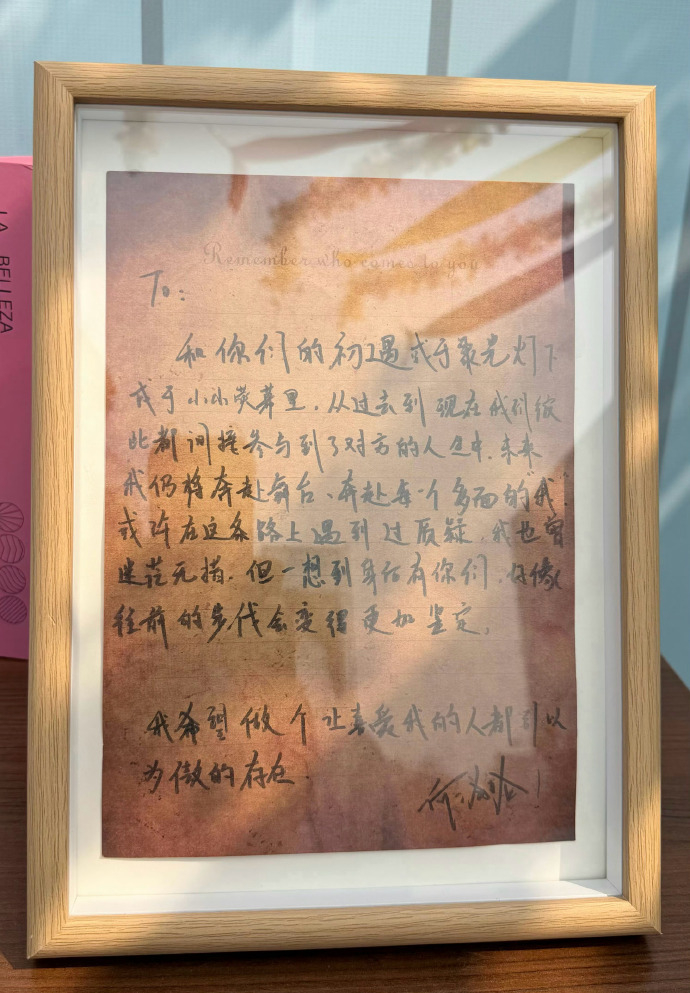 LA BELLEZA
Remember who comes to you
To:
和你们的初遇或于聚光灯下
或于小小荧幕里，从过去到现在我们彼
此都间接参与到了对方的人生中，未来
我仍将奔赴舞台、奔赴每一个多面的“我”
或许在这条路上遇到过质疑，我也曾
迷茫无措，但一想到身后有你们，好像
往前的步伐会变得更加坚定，
我希望做个让喜爱我的人都引以
为傲的存在.